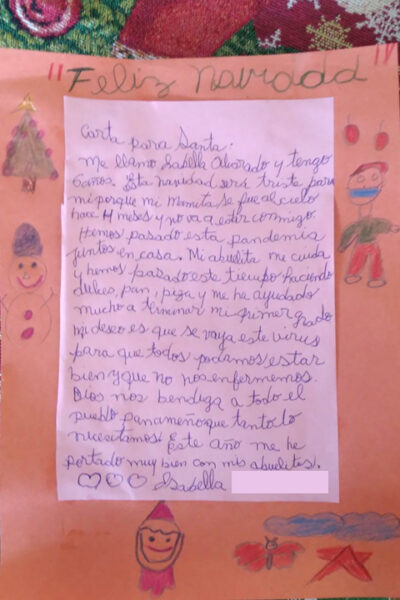 "Feliz Navidad"
Carta para Santa.
Me llamo Isabella Alvarado y tengo
6 años. Esta navidad será triste para
mi porque mi Mamita se fue al cielo
hace 4 meses y no va a estar conmigo
Hemos pasado esta pandemia
juntos en casa. Mi abuelita me cuida
y hemos pasado este tiempo haciendo
dulces, pan, piza y me ha ayudado
mucho a terminar mi primer grado
mi deseo es que se vaya este virus
para que todos podamos estar
bien y que no nos enfermemos.
Dios nos bendiga a todo el
pueblo panameño que tanto lo
necesitamos. Este año me he
portado muy bien con mis abuelitos.
Isabella